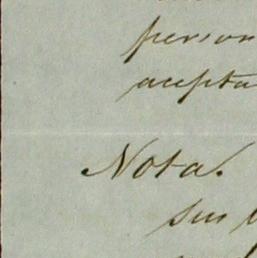 person
acepta
Nota.
sus